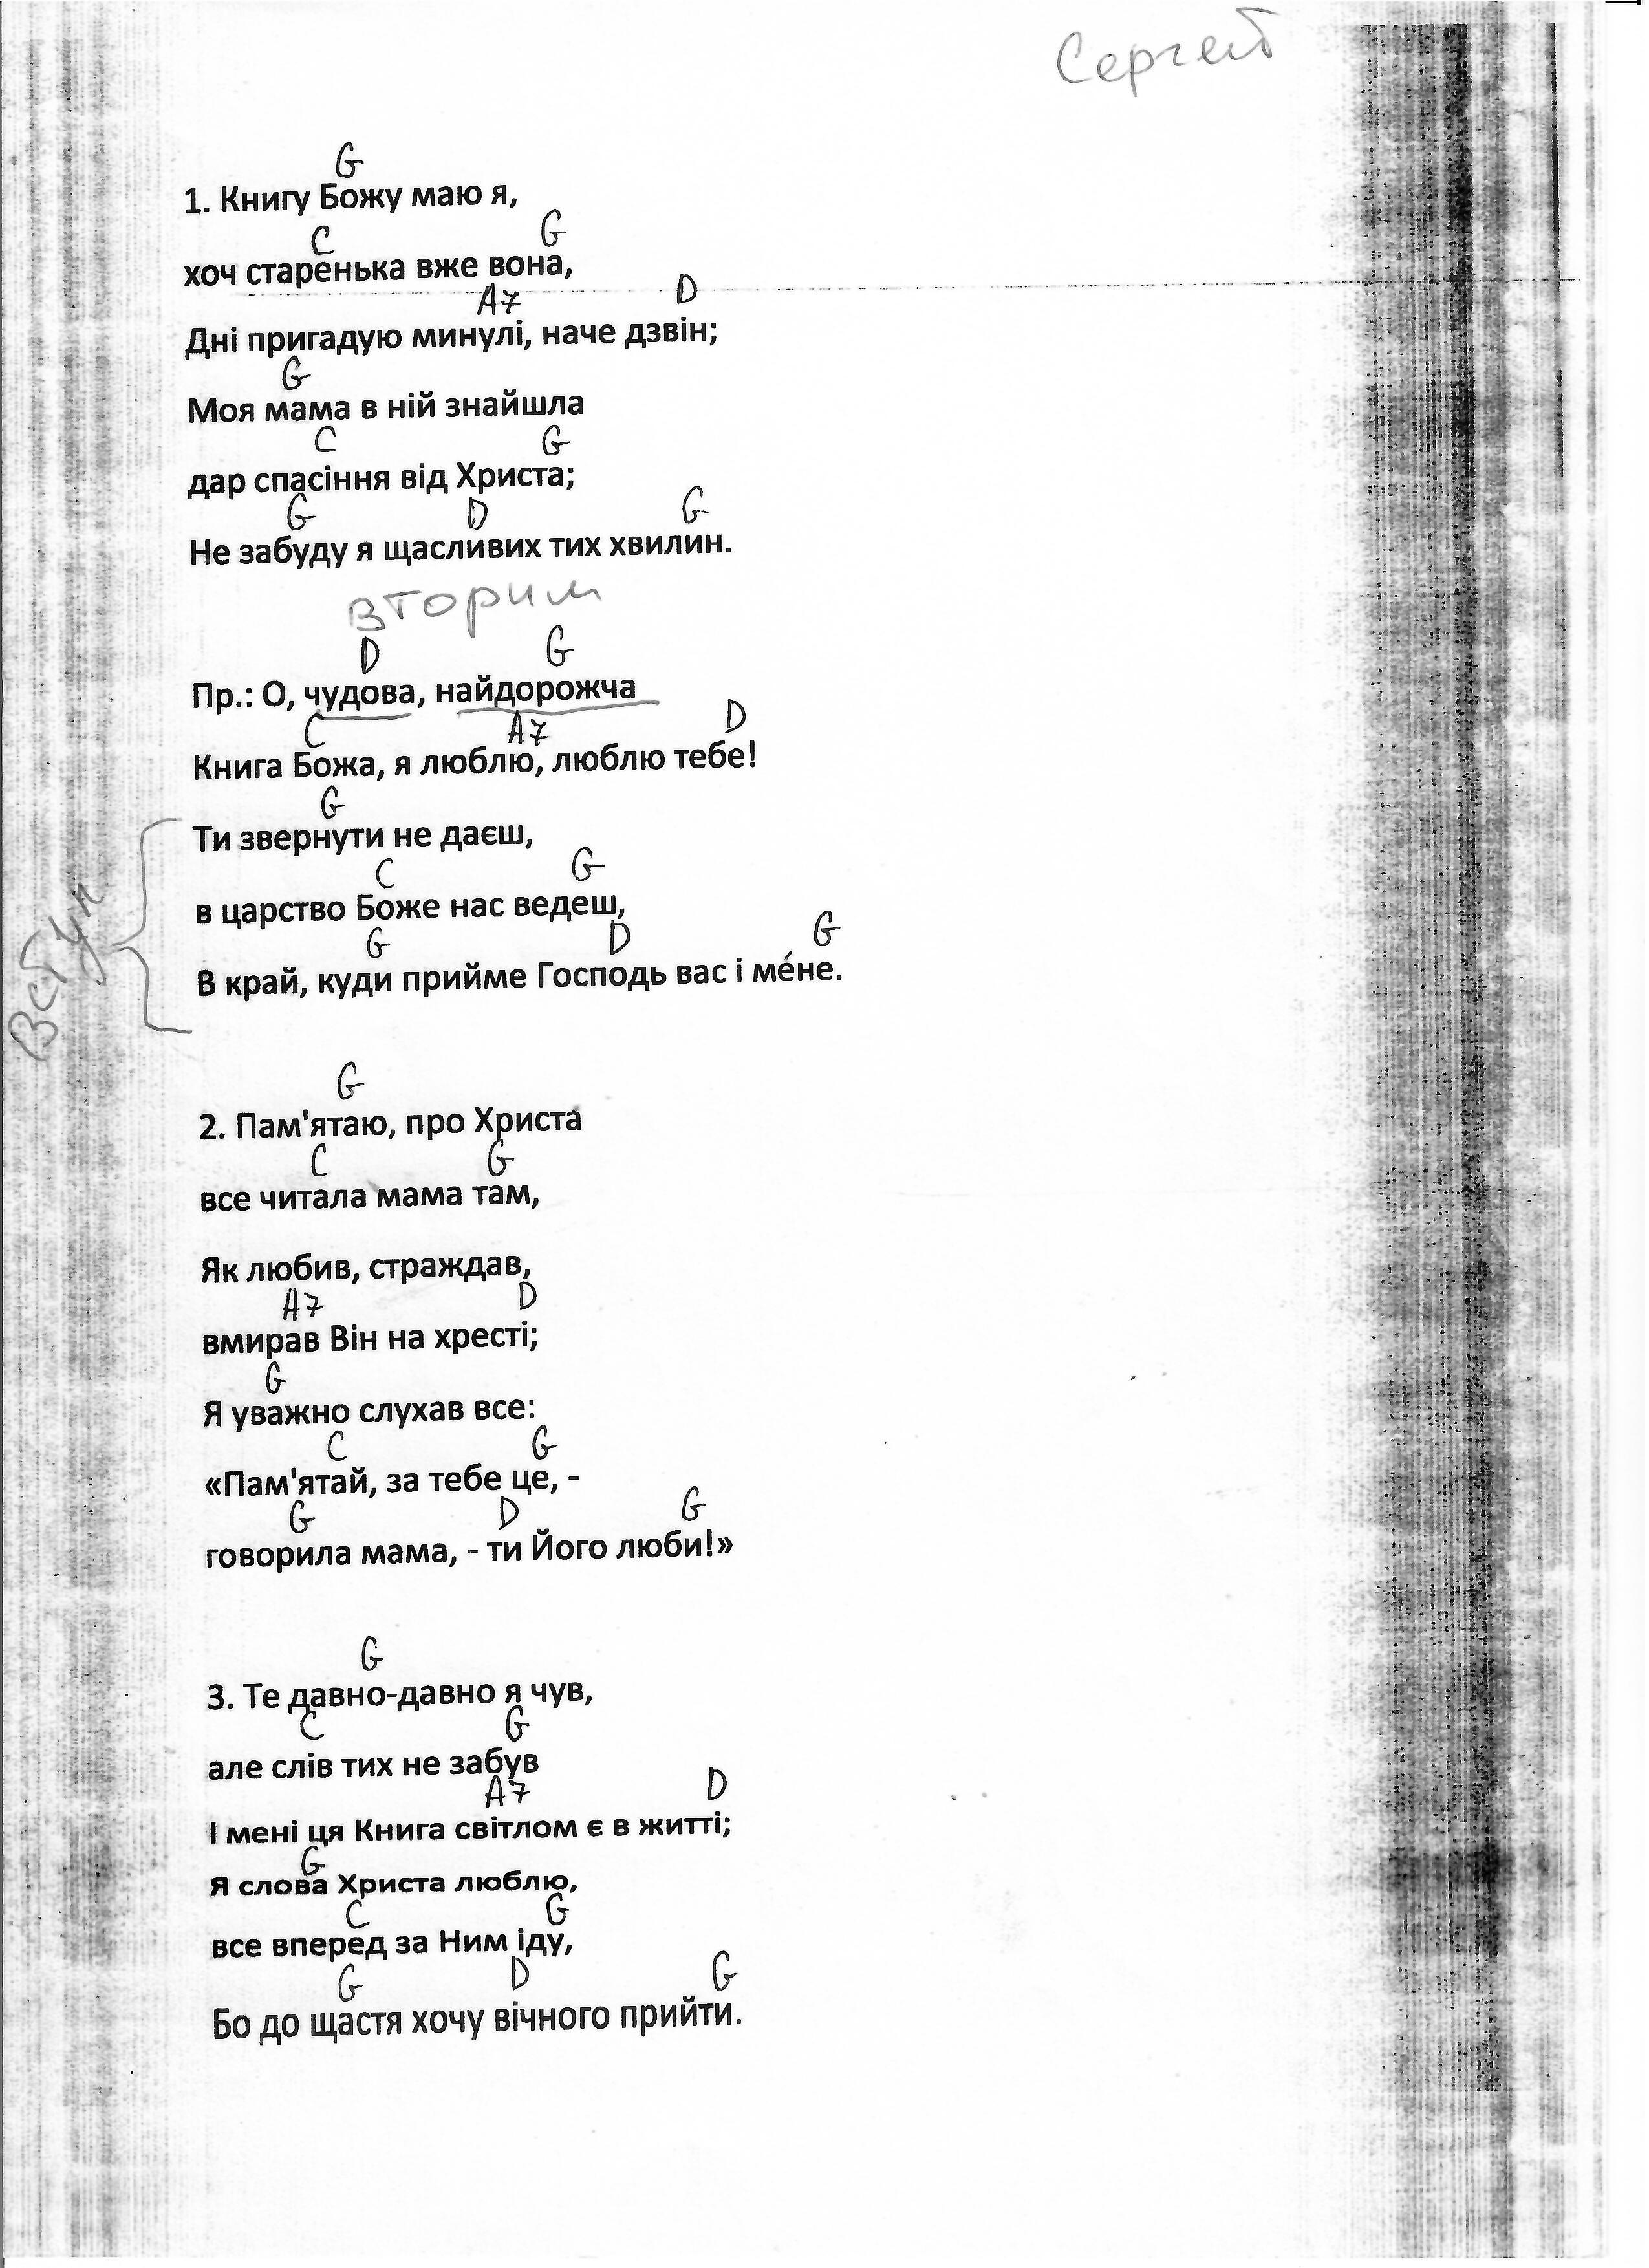 Сергей
G
1. Книгу Божу маю я,
C G
хоч старенька вже вона,
A7 D
Дні пригадую минулі, наче дзвін;
G
Моя мама в ній знайшла
C G
дар спасіння від Христа;
G D G
Не забуду я щасливих тих хвилин.
вторим
D G
Пр.: О, чудова, найдорожча
C A7 D
Книга Божа, я люблю, люблю тебе!
G
Ти звернути не даєш,
C G
в царство Боже нас ведеш,
G D G
В край, куди прийме Господь вас і ме́не.
Вступ
G
2. Пам'ятаю, про Христа
C G
все читала мама там,
Як любив, страждав,
A7 D
вмирав Він на хресті;
G
Я уважно слухав все:
C G
«Пам'ятай, за тебе це, -
G D G
говорила мама, - ти Його люби!»
G
3. Те давно-давно я чув,
C G
але слів тих не забув
A7 D
І мені ця Книга світлом є в житті;
G
Я слова Христа люблю,
C G
все вперед за Ним іду,
G D G
Бо до щастя хочу вічного прийти.